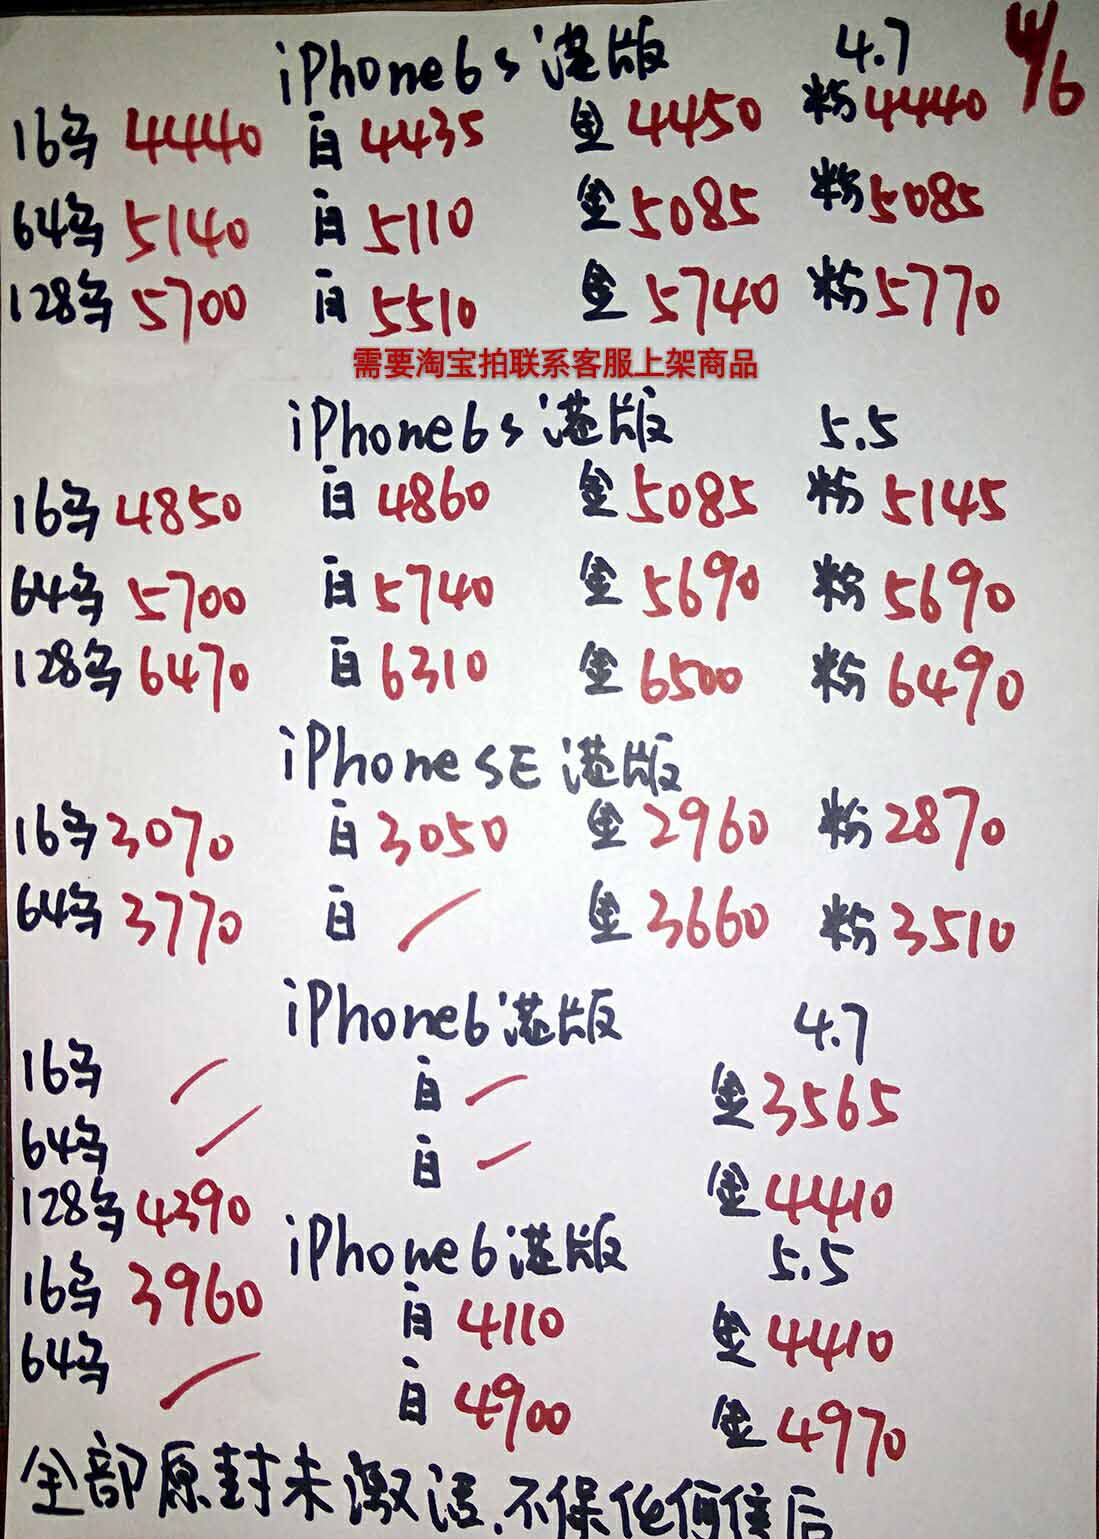 iPhone6s港版 4.7 4/6
16乌 4440 白 4435 金 4450 粉 4440
64乌 5140 白 5110 金 5085 粉 5085
128乌 5700 白 5510 金 5740 粉 5770
需要淘宝拍联系客服上架商品
iPhone6s港版 5.5
16乌 4850 白 4860 金 5085 粉 5145
64乌 5700 白 5740 金 5690 粉 5690
128乌 6470 白 6310 金 6500 粉 6490
iPhoneSE港版
16乌 3070 白 3050 金 2960 粉 2870
64乌 3770 白 / 金 3660 粉 3510
iPhone6港版 4.7
16乌 / 白 / 金 3565
64乌 / 白 / 金 4410
128乌 4390
iPhone6港版 5.5
16乌 3960 白 4110 金 4410
64乌 / 白 4900 金 4970
全部原封未激活.不保任何售后